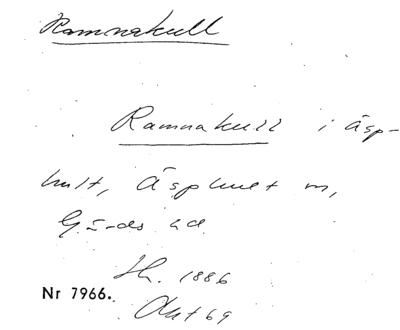 Ramnakull
Ramnakull i Äsp-
hult, Äsphult sn,
Gärds hd
Sk. 1886
Nr 7966.
Akt 69